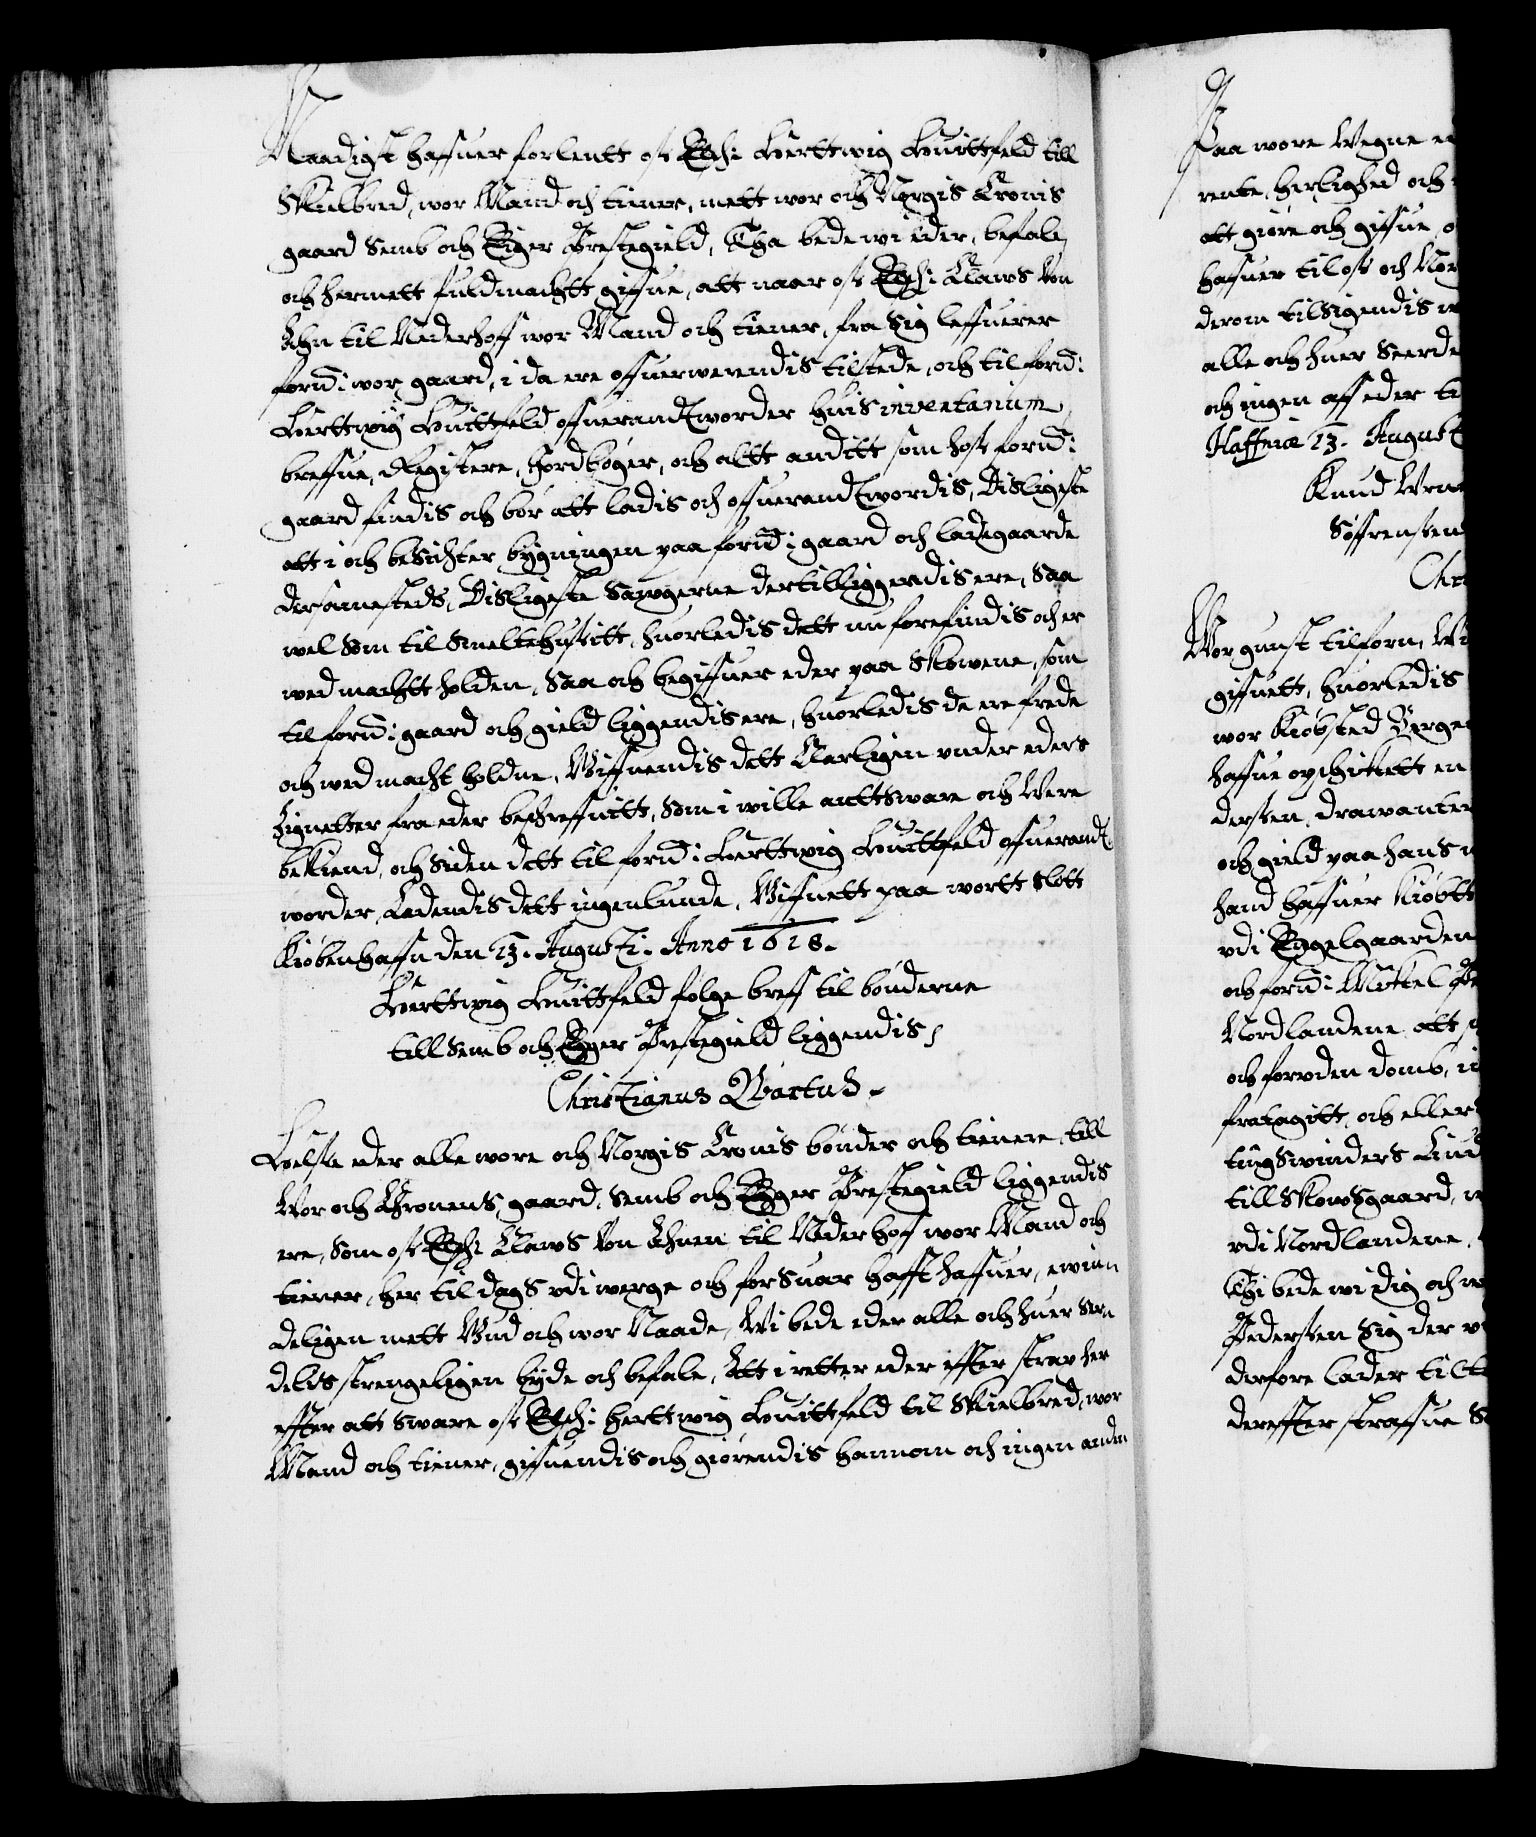 Naadigst haffuer forlentt oss Elsk: Herttwig Huittfeld till
Skielbred, wor Mand och tiener, mett wor och Norgis Cronis
gaard Semb och Eiger Prestegield, Tha bede wi eder, befale
och hermett fuldmachtt giffue, att naar oss Elsk: Claws Von
Ahn til Nederhoff wor Mand och tiener, fra sig leffuerer
forn: wor gaard, i da ere offuerwerendis tilstede, och til forn:
Herttwig Huittfeld offuerandtworder huis inventarium
breffue, Registere, Jordbøger, och altt anditt som hoss forn:
gaard findis och bør att ladis och offuerandtwordis, Disligeste
att i och besichter bygningen paa forn: gaard och ladegaarde
dersamesteds, Disligeste Sawgerne dertilliggendis ere, saa
wel som til smeltehussitt, huorledis dett nu forefindis och er
wed machtt holden, Saa och begiffuer eder paa Skowene, som
til forn: gaard och gield liggendis ere, huorledis de ere frede
och wed macht holdne, Giffuendis dett Klarligen under eders
Zignetter fra eder beschreffuitt, som i wille anttsware och Were
bekiend, och siden dett til forn: Herttwig Huittfeld offuerandt
worder, Ladendis dett ingenlunde, Giffuett paa wortt Slott
Kiøbenhaffn den 13. Augusti. Anno 1618.
Herttwig Huittfeld følge breff til bønderne
till Semb och Eger Prestegield liggendis,
Christianus Qvartus.
Helse eder alle wore och Norgis Cronis bønder och tienere, till
Wor och Chronens gaard, Semb och Eger Prestegield liggendis
ere, som oss Elsk: Claws Von Ahnen til Nederhoff wor Mand och
tiener, her til dags udi werge och forsuar hafft haffuer, ewinn
deligen mett Gud och wor Naade, Wi bede eder alle och huer sern
delis strengeligen byde och befale, Att i retter eder effter strax her
effter att sware oss Elsk: Herttwig Huittfeld til Skielbred, wor
Mand och tiener, giffuendis och giørendis hannom och ingen anden
Paa wore Wegne
rente, herlighed och
att giøre och giffue
haffuer til oss och Nor
derom tilsigendis
alle och huer Seerde
och ingen aff eder
Haffniæ 13. August
Knud
Søffrensten
Chr
Wor gunst tilforn, Wi
giffuett, huorledis
wor Kiøbsted Berge
haffue opschickett en
dersten, drawanter
och gield paa hans
hand haffuer Kiøbtt
udi Engelgaarden
och forn: Mickel
Nordlandene att
och foruden domb,
fratagitt, och eller
tingswinders
till Skowsgaard,
udi Nordlandene,
Thi bede wi dig och
Pedersten sig der
derfore lader
dereffter straffue